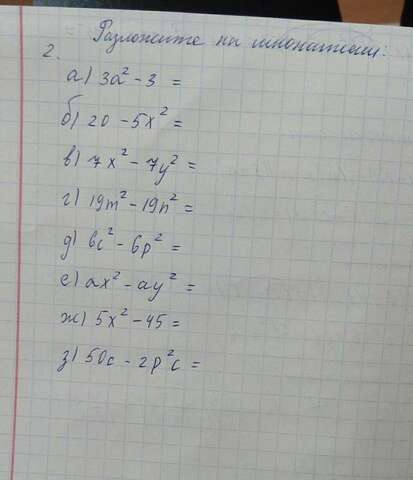 Разложите на множители:
2.
а) 3a² - 3 =
б) 20 - 5x² =
в) 7x² - 7y² =
г) 19m² - 19n² =
д) вс² - вр² =
е) ax² - ay² =
ж) 5x² - 45 =
з) 50c - 2p²c =